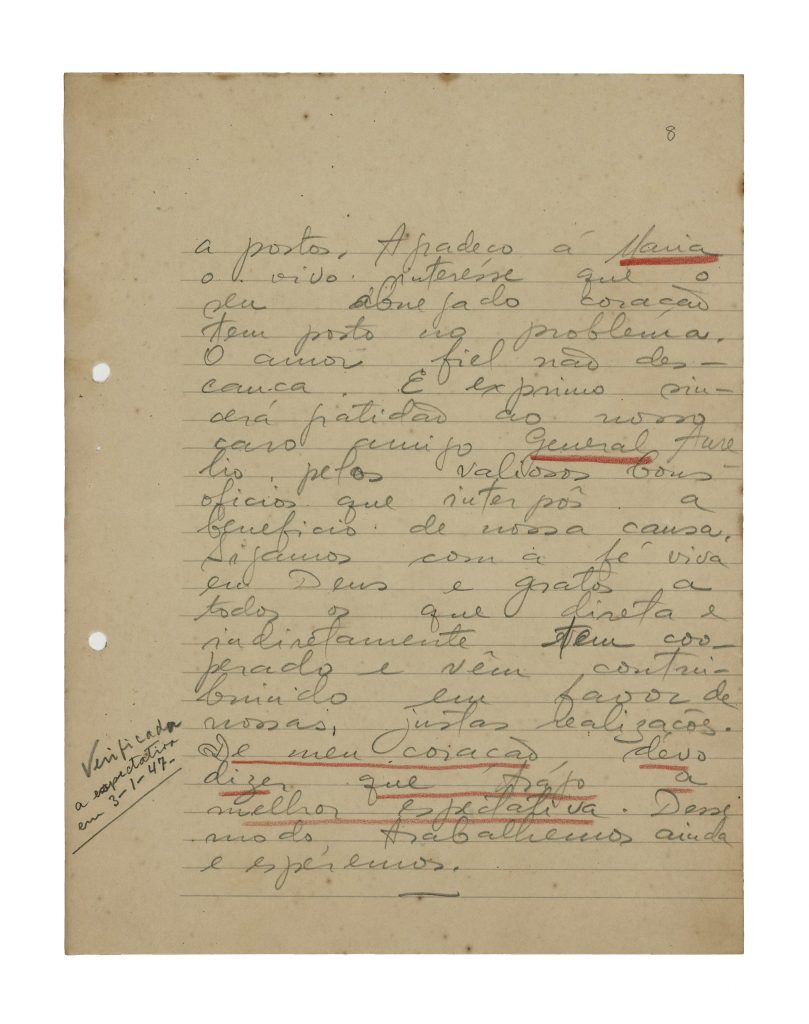 8
a postos. Agradeço á Maria
o vivo interêsse que o
seu abnegado coração
tem posto no problema.
O amor fiel não des-
cança. E exprimo sin-
cera gratidão ao nosso
caro amigo General Aure
lio, pelos valiosos bons
oficios que interpôs a
beneficio de nossa causa.
Sigamos com a fé viva
em Deus e gratos a
todos os que direta e
indiretamente tem coo-
perado e vêm contri-
buindo em favor de
nossas, justas realizações.
De meu coração, dévo
dizer que trago a
melhor espectativa. Desse
modo trabalhemos ainda
e espéremos.
Verificada
a expectativa
em 3-1-47-